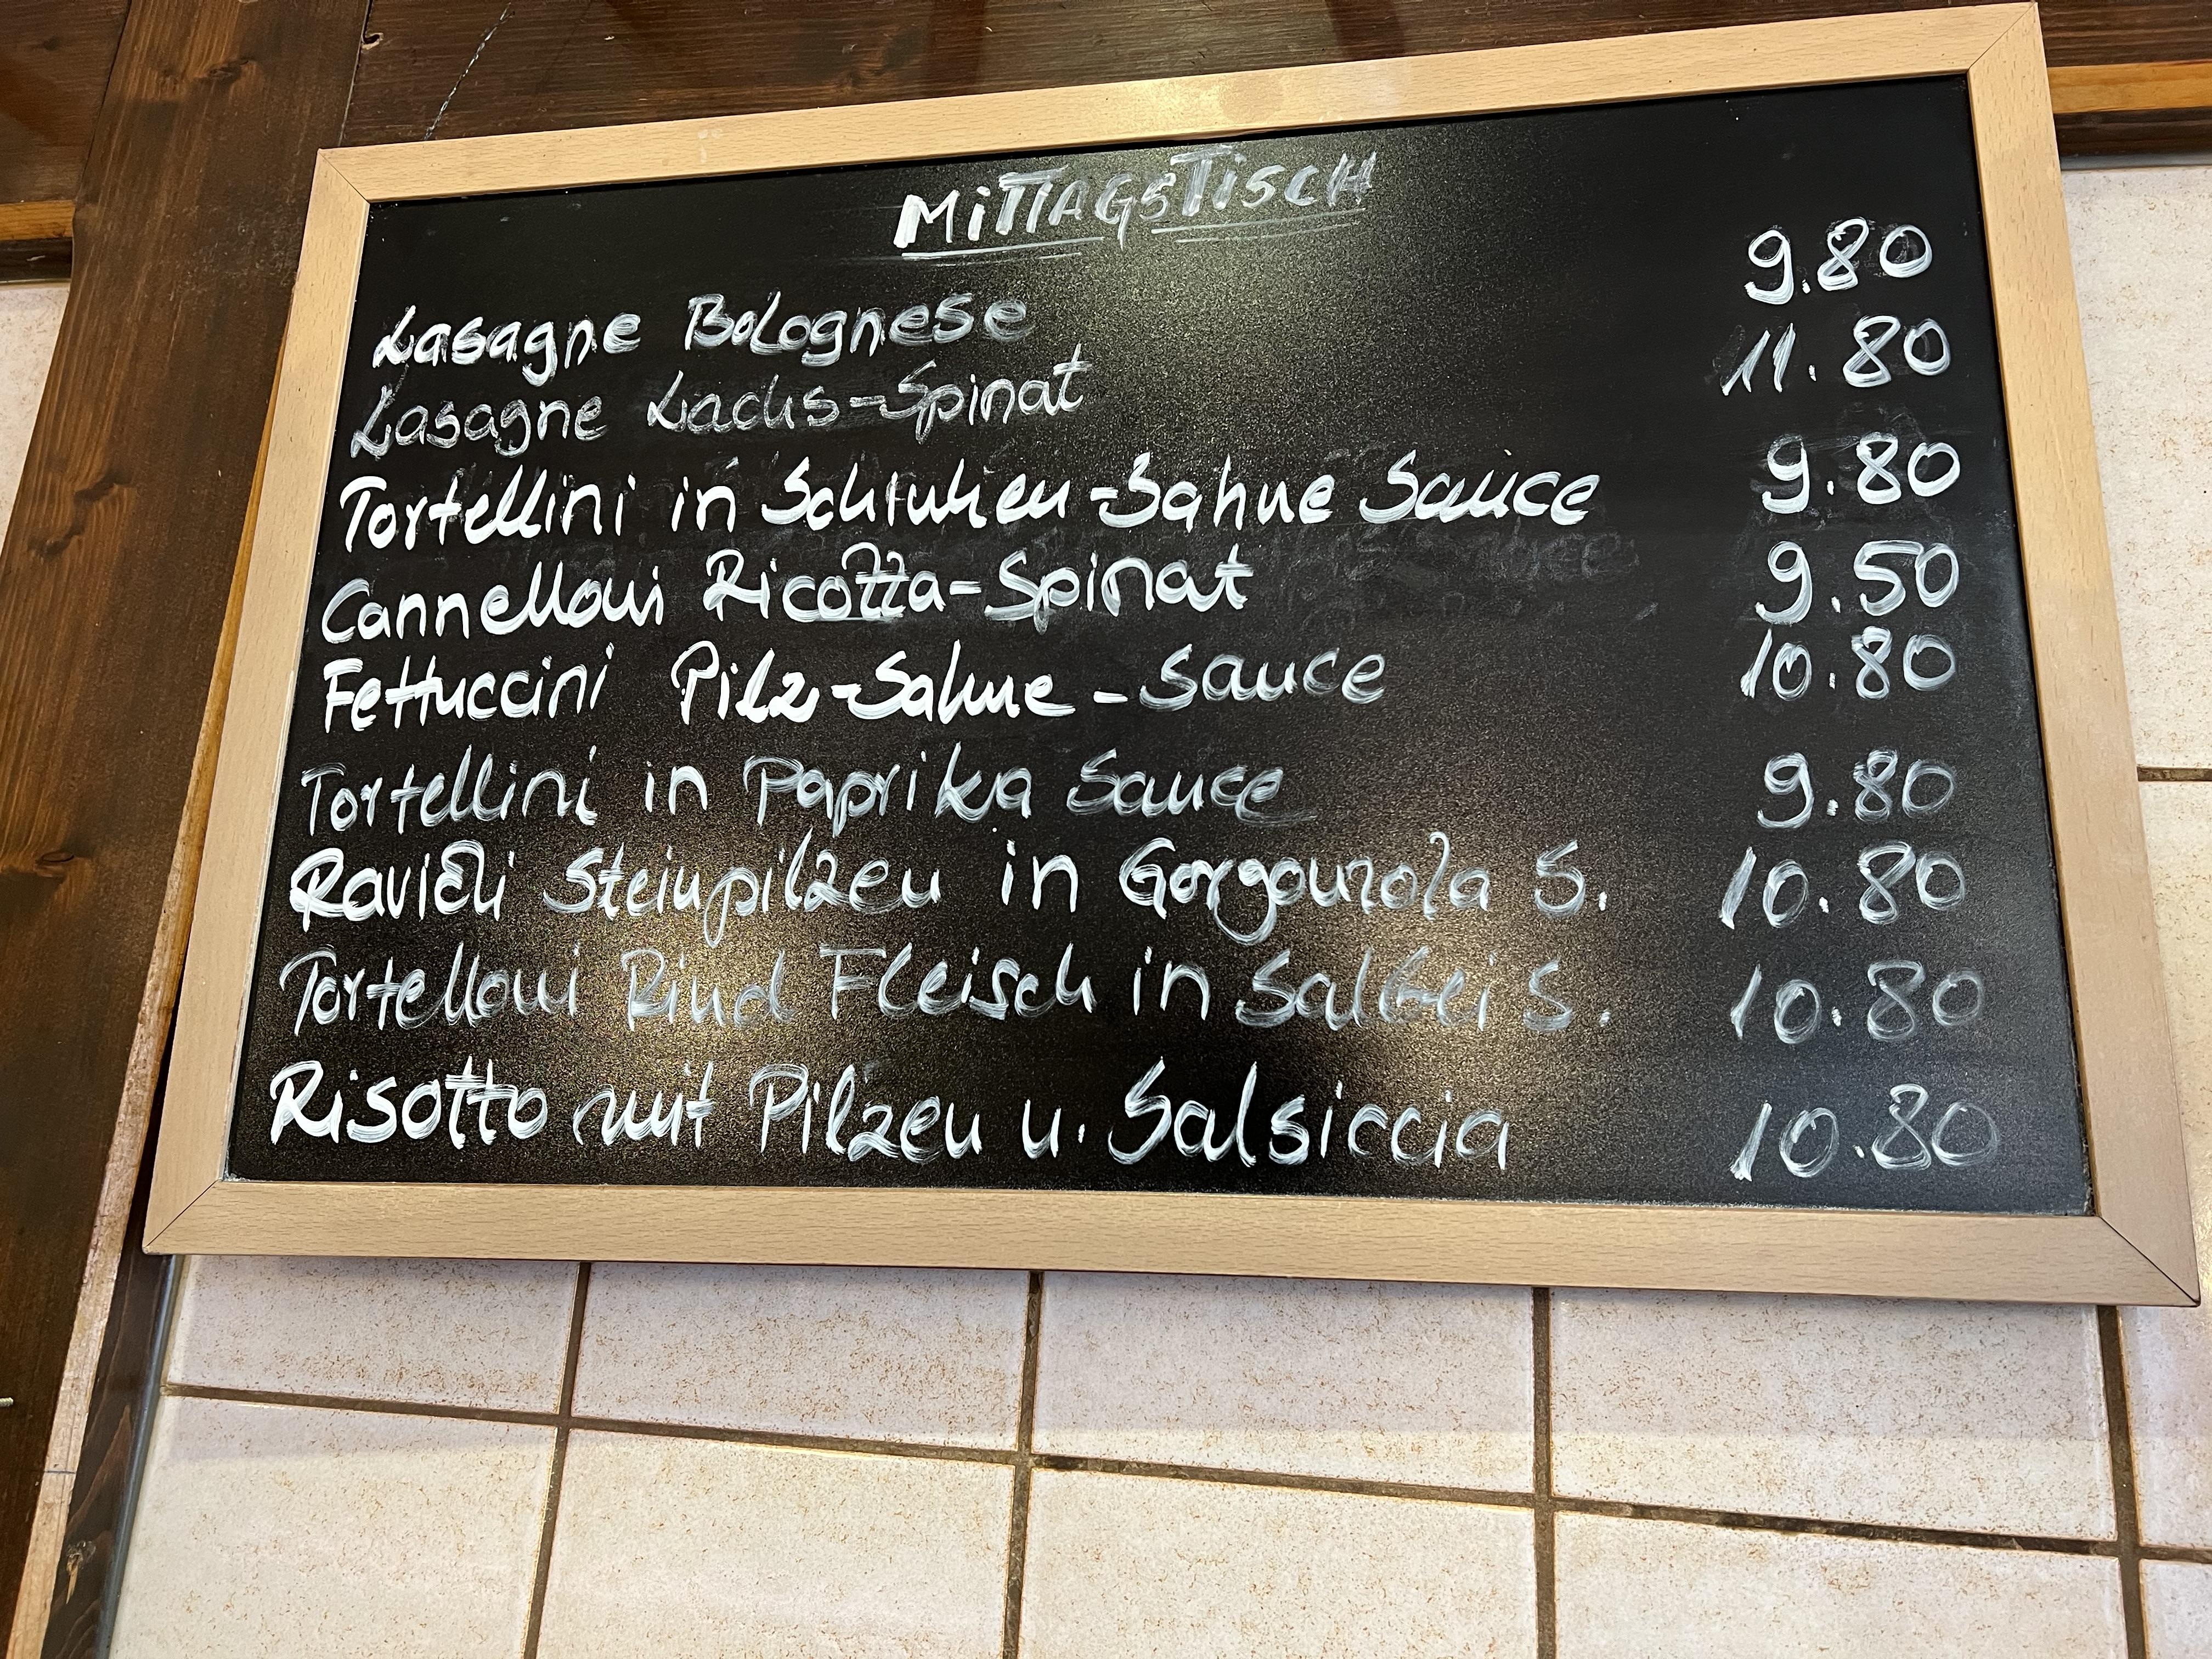 MITTAGSTISCH
Lasagne Bolognese 9.80
Lasagne Lachs-Spinat 11.80
Tortellini in Schinken-Sahne Sauce 9.80
Cannelloni Ricotta-Spinat 9.50
Fettuccini Pilz-Sahne-Sauce 10.80
Tortellini in Paprika Sauce 9.80
Ravioli Steinpilzen in Gorgonzola S. 10.80
Tortelloni Rind Fleisch in Salbei S. 10.80
Risotto mit Pilzen u. Salsiccia 10.80